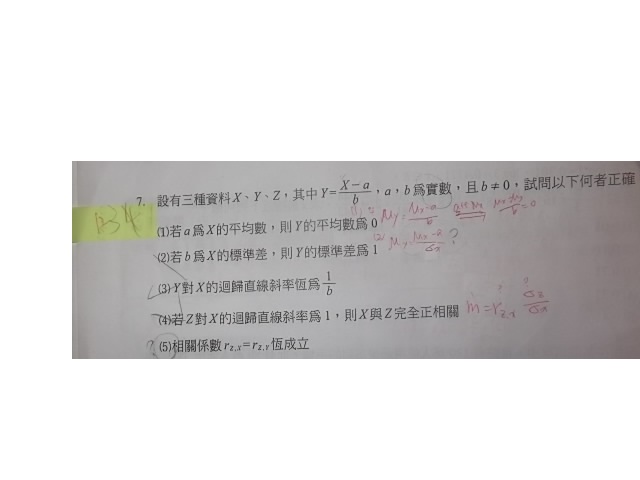 7. 設有三種資料 X、Y、Z，其中 Y=\frac{X-a}{b}，a，b 爲實數，且 b≠0，試問以下何者正確
(1)若 a 爲 X 的平均數，則 Y 的平均數爲 0
(2)若 b 爲 X 的標準差，則 Y 的標準差爲 1 ?
(3) Y 對 X 的迴歸直線斜率恆爲 \frac{1}{b}
(4)若 Z 對 X 的迴歸直線斜率爲 1，則 X 與 Z 完全正相關 m=r_{z,x} \frac{σ_z}{σ_x}
(5)相關係數 r_{Z,X}=r_{Z,Y} 恆成立